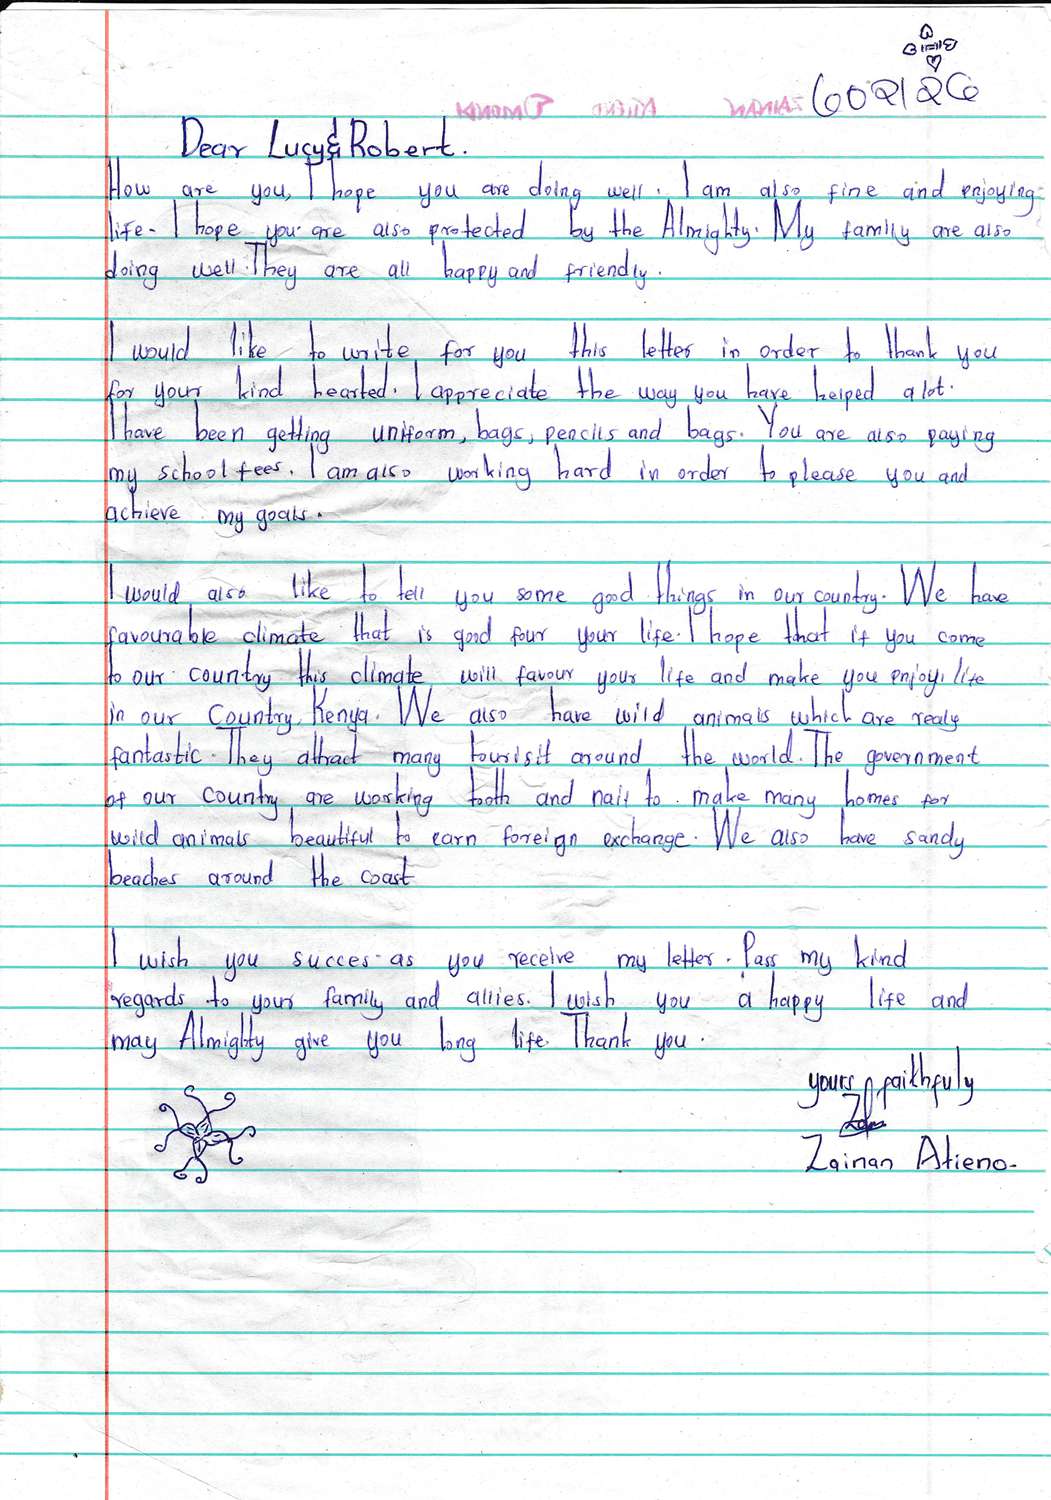 602126
Dear Lucy & Robert.
How are you, I hope you are doing well. I am also fine and enjoying
life. I hope you are also protected by the Almighty. My family are also
doing well. They are all happy and friendly.
I would like to write for you this letter in order to thank you
for your kind hearted. I appreciate the way you have helped a lot.
I have been getting uniform, bags, pencils and bags. You are also paying
my school fees. I am also working hard in order to please you and
achieve my goals.
I would also like to tell you some good things in our country. We have
favourable climate that is good four your life. I hope that if you come
to our country this climate will favour your life and make you enjoy life
in our Country, Kenya. We also have wild animals which are realy
fantastic. They attract many tourisit around the world. The government
of our country are working tooth and nail to make many homes for
wild animals beautiful to earn foreign exchange. We also have sandy
beaches around the coast
I wish you succes as you receive my letter. Pass my kind
regards to your family and allies. I wish you a happy life and
may Almighty give you long life. Thank you.
yours faithfuly
Zainan Atieno.